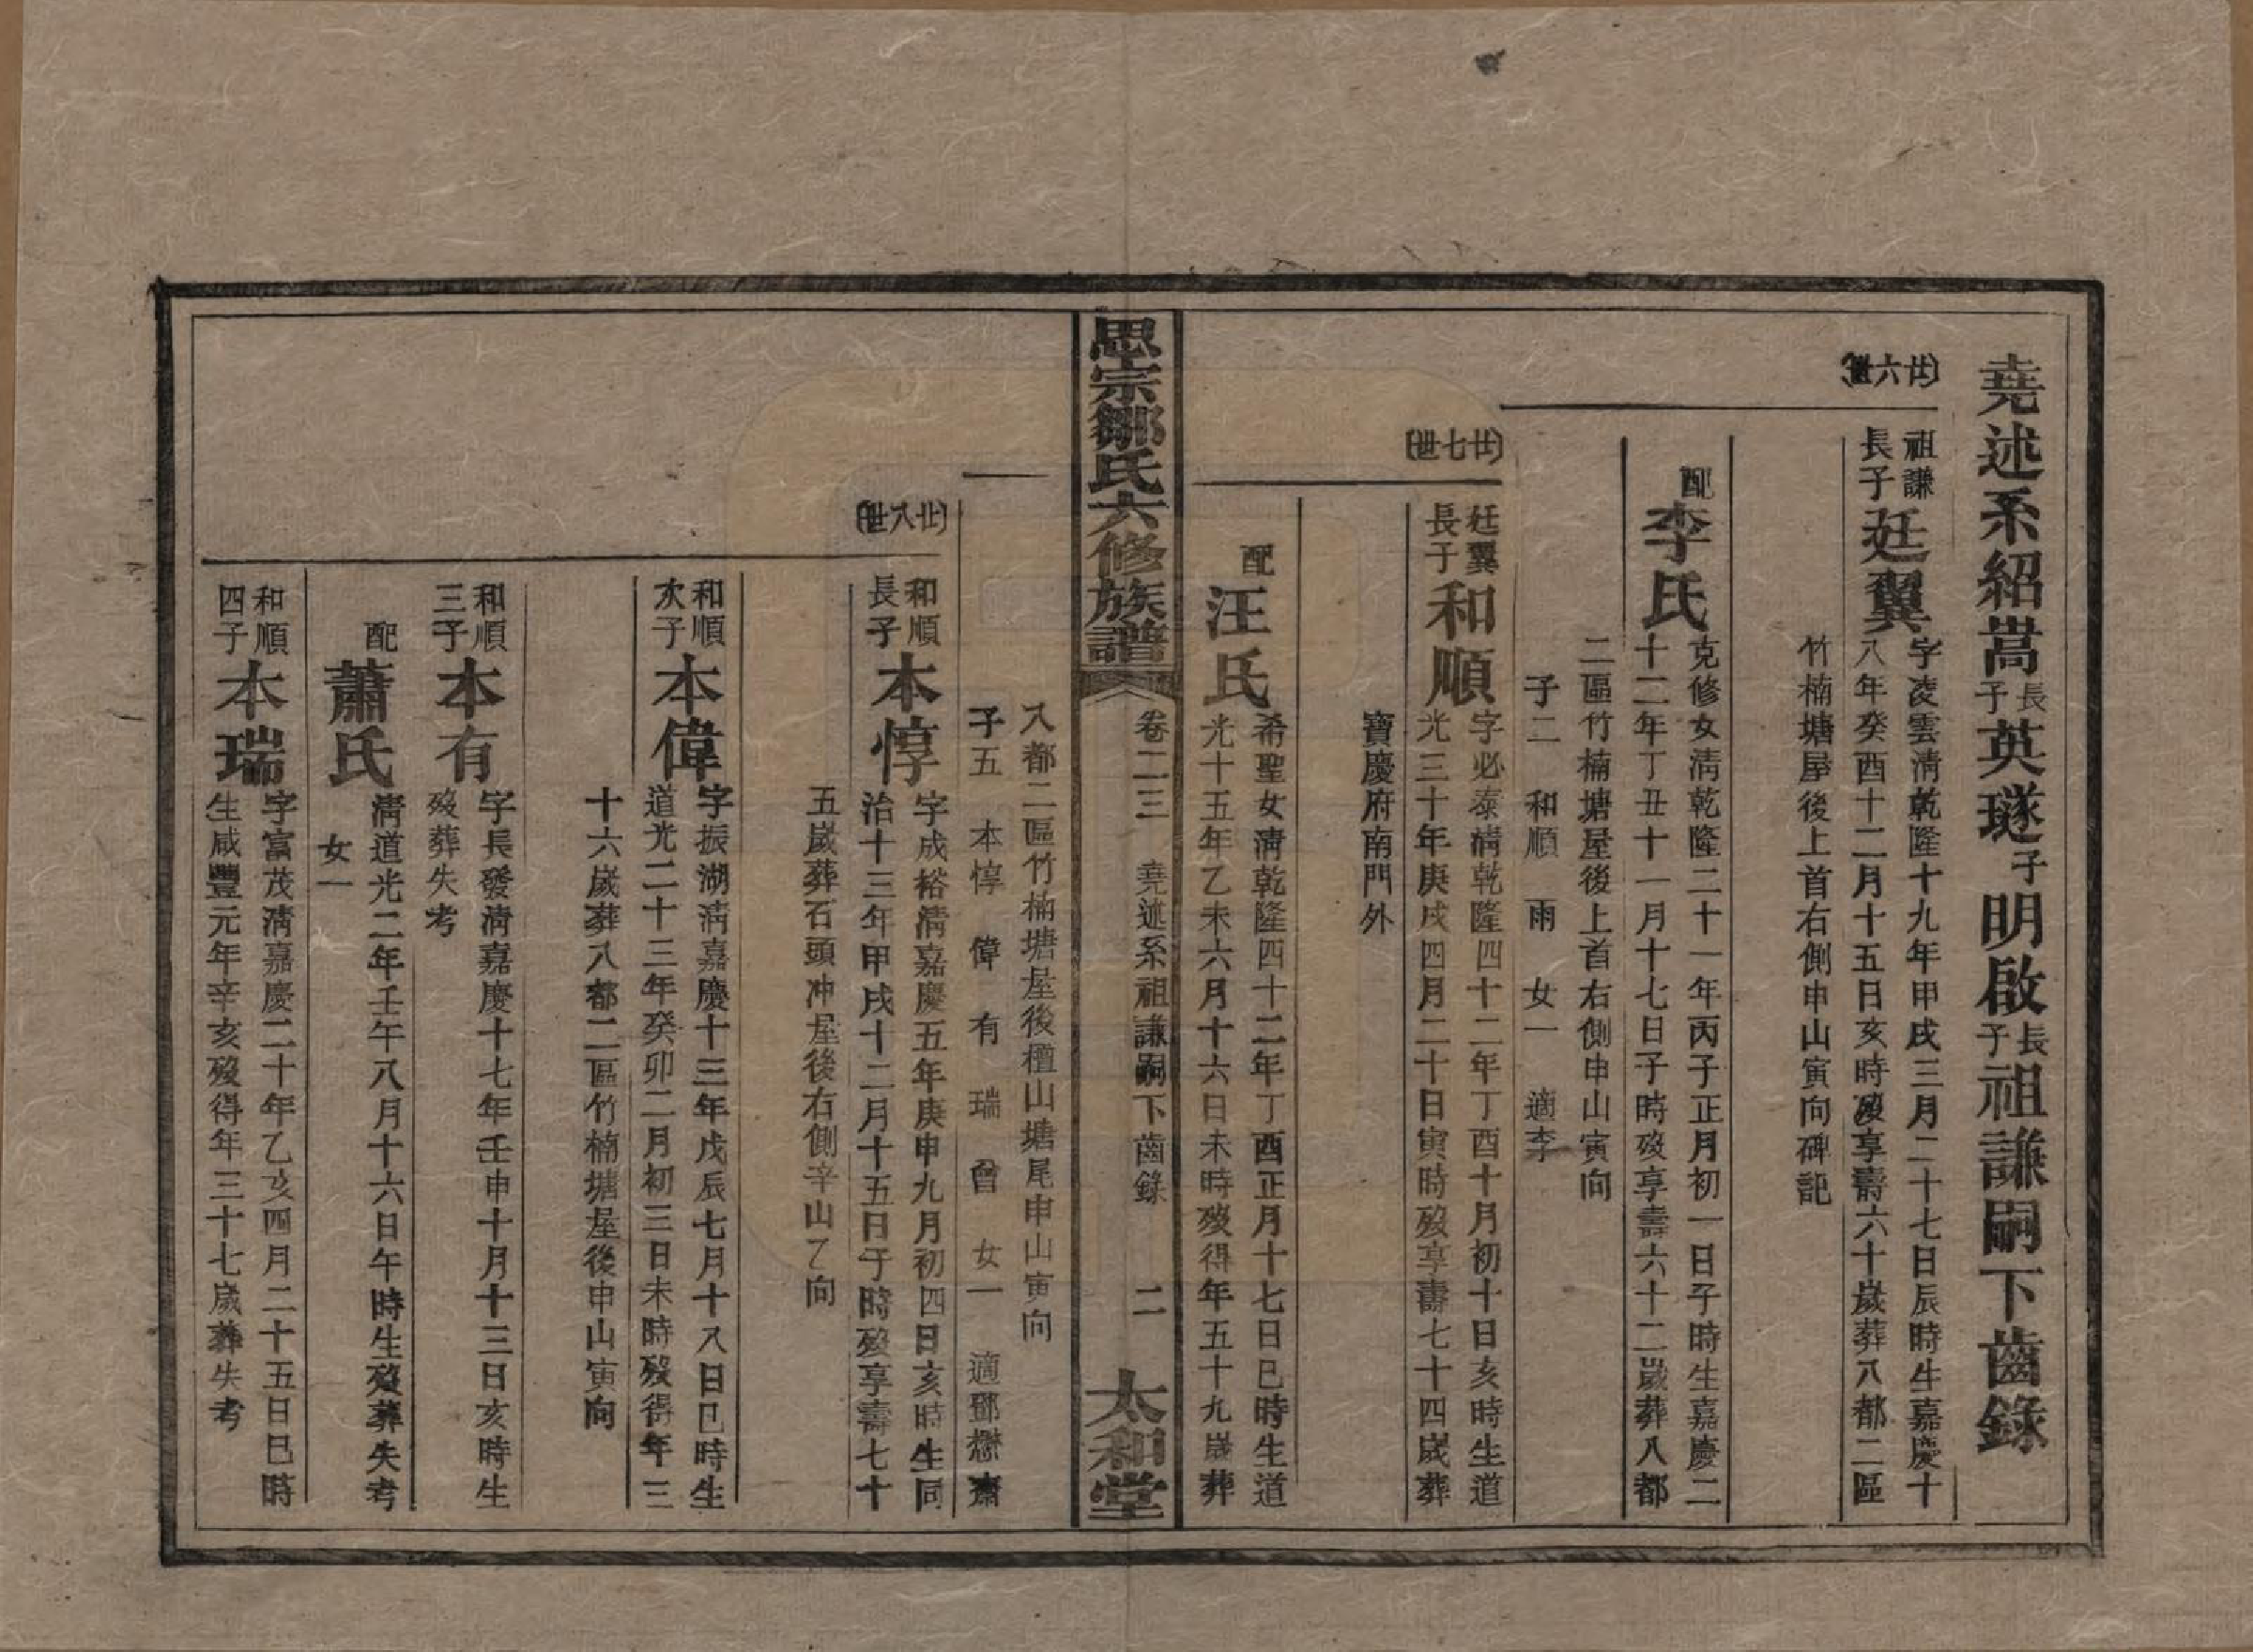 堯述系紹嵩長子英璲子明啟長子祖謙嗣下齒錄
廿六世
祖謙長子廷翼
字凌雲淸乾隆十九年甲戌三月二十七日辰時生嘉慶十
八年癸酉十二月十五日亥時歿享壽六十歲葬八都二區
竹楠塘屋後上首右側申山寅向碑記
配李氏
克修女淸乾隆二十一年丙子正月初一日子時生嘉慶二
十二年丁丑十一月十七日子時歿享壽六十二歲葬八都
二區竹楠塘屋後上首右側申山寅向
子二 和順 雨 女一 適李
廿七世
廷翼長子和順
字必泰淸乾隆四十二年丁酉十月初十日亥時生道
光三十年庚戌四月二十日寅時歿享壽七十四歲葬
寶慶府南門外
配汪氏
希聖女淸乾隆四十二年丁酉正月十七日巳時生道
光十五年乙未六月十六日未時歿得年五十九歲葬
思宗鄒氏六修族譜 卷二三 堯述系祖謙嗣下齒錄 二 太和堂
八都二區竹楠塘屋後檀山塘尾申山寅向
子五 本惇 偉 有 瑞 曾 女一 適鄧懋齋
廿八世
和順長子本惇
字成裕淸嘉慶五年庚申九月初四日亥時生同
治十三年甲戌十二月十五日子時歿享壽七十
五歲葬石頭冲屋後右側辛山乙向
和順次子本偉
字振湖淸嘉慶十三年戊辰七月十八日巳時生
道光二十三年癸卯二月初三日未時歿得年三
十六歲葬八都二區竹楠塘屋後申山寅向
和順三子本有
字長發淸嘉慶十七年壬申十月十三日亥時生
歿葬失考
配蕭氏
淸道光二年壬午八月十六日午時生歿葬失考
女一
和順四子本瑞
字富茂淸嘉慶二十年乙亥四月二十五日巳時
生咸豐元年辛亥歿得年三十七歲葬失考